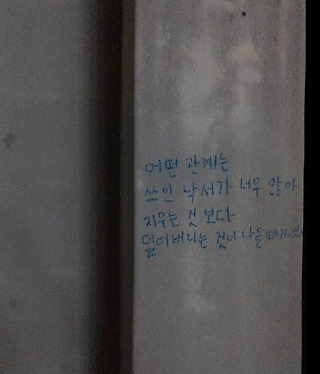 어떤 관계는
쓰인 낙서가 너무 많아
지우는 것 보다
덮어버리는 것이 나을 때가